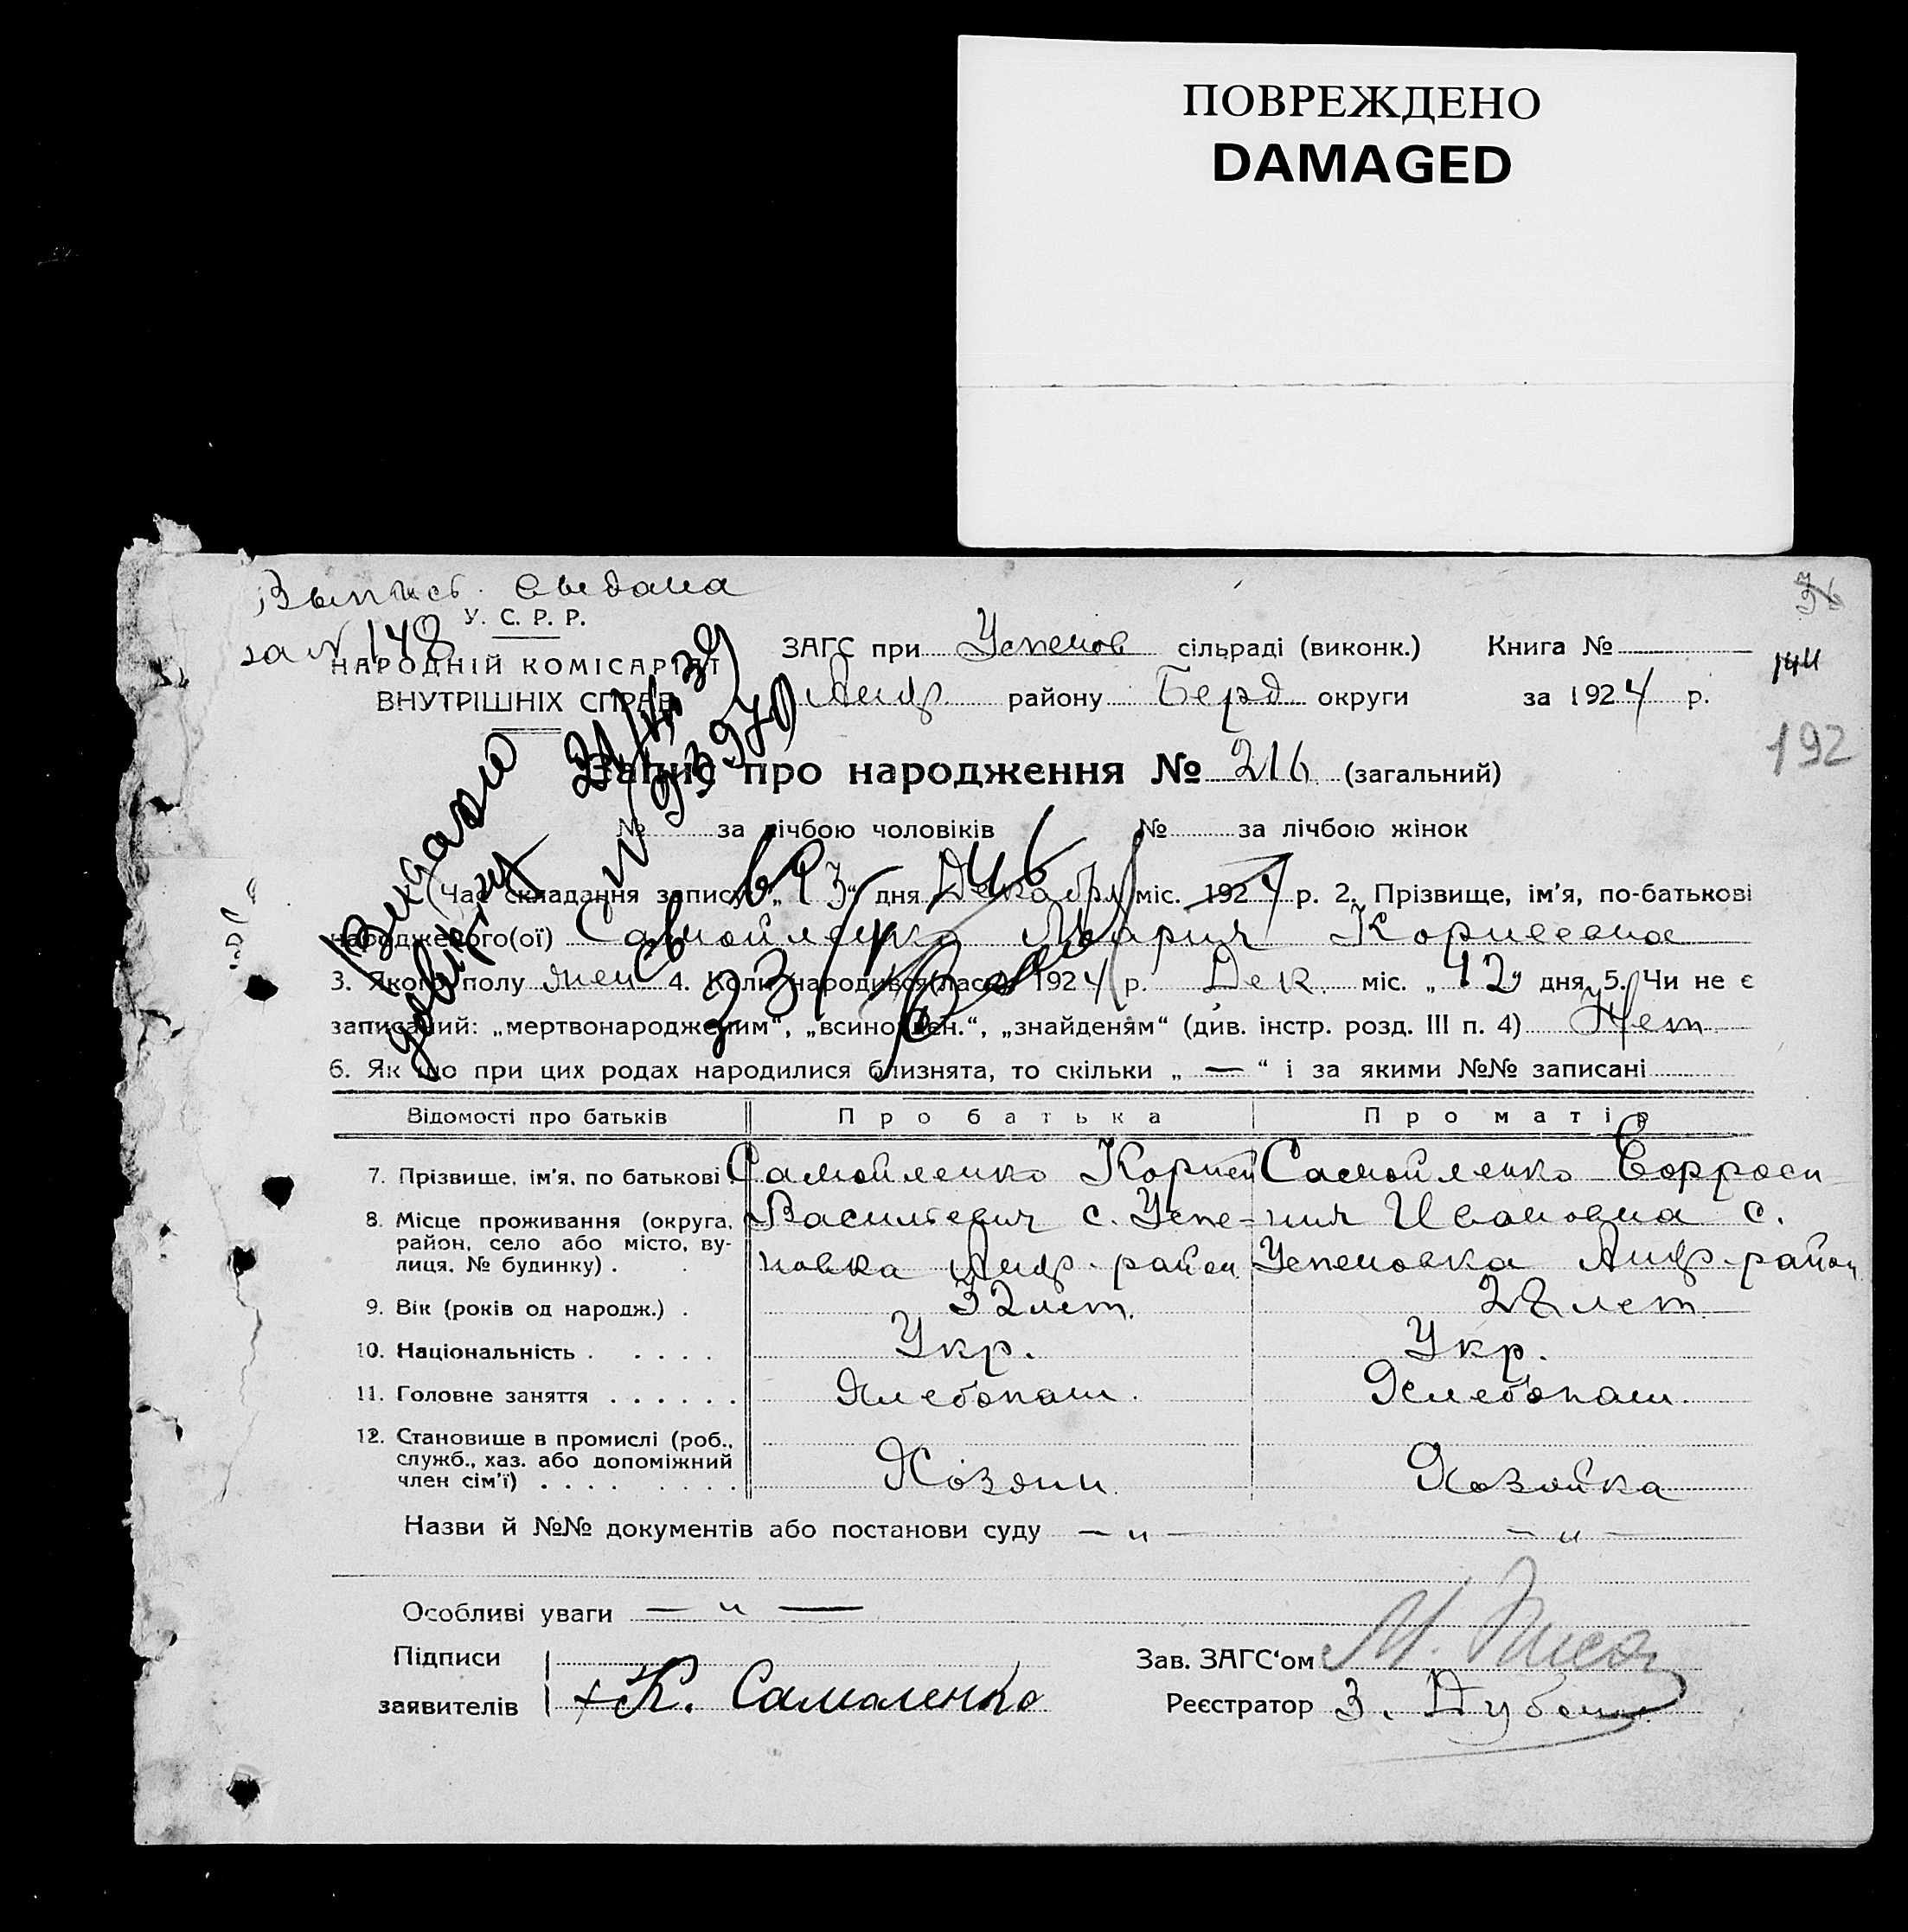 ПОВРЕЖДЕНО
DAMAGED
Выпись выдана
за № 148
36
У. С. Р. Р.
НАРОДНІЙ КОМІСАРІАТ
ВНУТРІШНІХ СПРАВ
ЗАГС при Успенов сільраді (виконк.) Книга №
Андр. району Берд округи за 1924 р.
144
192
Запис про народження № 216 (загальний)
№ за лічбою чоловіків № за лічбою жінок
1. Час складання запису „13“ дня Декабря міс. 1924 р. 2. Прізвище, ім’я, по-батькові
народженого(ої) Самойленко Мария Корнеевна
3. Якого полу жен 4. Коли народився(лася) 1924 р. Дек. міс. „12“ дня 5. Чи не є
записаний: „мертвонародженим“, „всиновлен.“, „знайденям“ (див. інстр. розд. III п. 4) Нет
6. Як що при цих родах народилися близнята, то скільки „ — “ і за якими №№ записані
Видано
довідку
Відомості про батьків Про батька Про матір
7. Прізвище, ім’я, по батькові Самойленко Корней Самойленко
8. Місце проживання (округа, район, село або місто, вулиця, № будинку) . Васильевич с. Успе- Ивановна с.
новка Андр. район Успеновка Андр. район
9. Вік (років од народж.) . 32 лет. 28 лет
10. Національність . . . . . Укр. Укр.
11. Головне заняття . . . . . . Хлебопаш. Хлебопаш.
12. Становище в промислі (роб., служб., хаз. або допоміжний член сім’ї) . . . . Хозяин Хозяйка
Назви й №№ документів або постанови суду — „ — — „ —
Особливі уваги — „ —
Підписи
заявителів + К. Самоленко
Зав. ЗАГС‘ом М.
Реєстратор З.